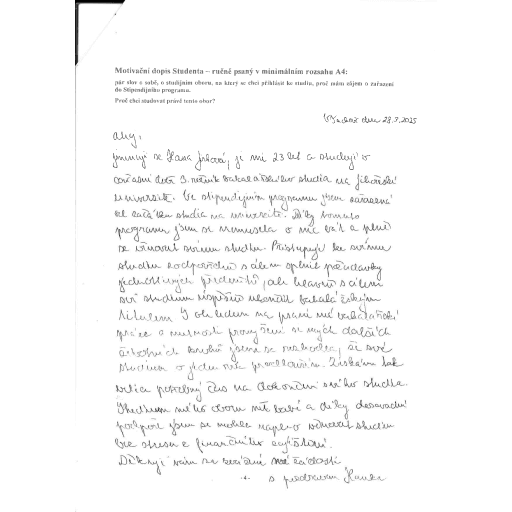 Motivační dopis Studenta – ručně psaný v minimálním rozsahu A4:
pár slov o sobě, o studijním oboru, na který se chci přihlásit ke studiu, proč mám zájem o zařazení
do Stipendijního programu.
Proč chci studovat právě tento obor?
dne 28.7.2025
Ahoj,
jmenuji se Hana, je mi 23 let a studuji v
současné době 3. ročník bakalářského studia na Jihočeské
univerzitě. Ve stipendijním programu jsem zařazená
od začátku studia na univerzitě. Díky tomuto
programu jsem se nemusela o nic bát a plně
se věnovat svému studiu. Přistupuji ke svému
studiu zodpovědně s cílem splnit požadavky
jednotlivých předmětů, ale hlavně s cílem
své studium úspěšně ukončit bakalářským
titulem. S ohledem na psaní mé bakalářské
práce a nutnosti
jsem se rozhodla, že své
studium o jeden rok prodloužím. Získám tak
potřebný čas na dokončení svého studia.
Studium mého oboru mě baví a díky dosavadní
podpoře jsem se mohla naplno věnovat studiu
bez stresu z finančního zajištění.
Děkuji vám za zvážení mé žádosti
s pozdravem Hanka